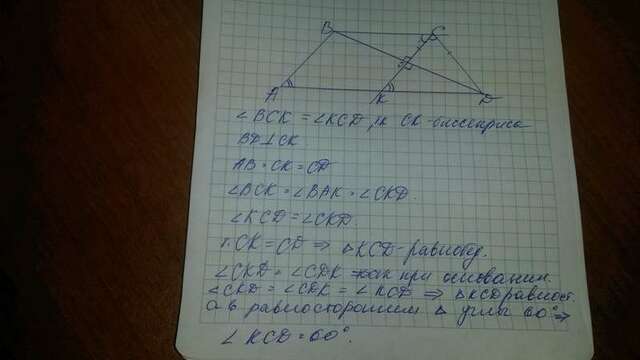 B C
A K D
∠BCK = ∠KCD, тк CK-биссектриса
BD⊥CK
AB = CK = CD
∠BCK = ∠BAK = ∠CKD.
∠KCD = ∠CKD.
т. CK = CD ⇒ △KCD-равнобед.
∠CKD = ∠CDK как при основании.
∠CKD = ∠CDK = ∠KCD ⇒ △KCD равност.
а в равностороннем △ углы 60° ⇒
∠KCD = 60°.